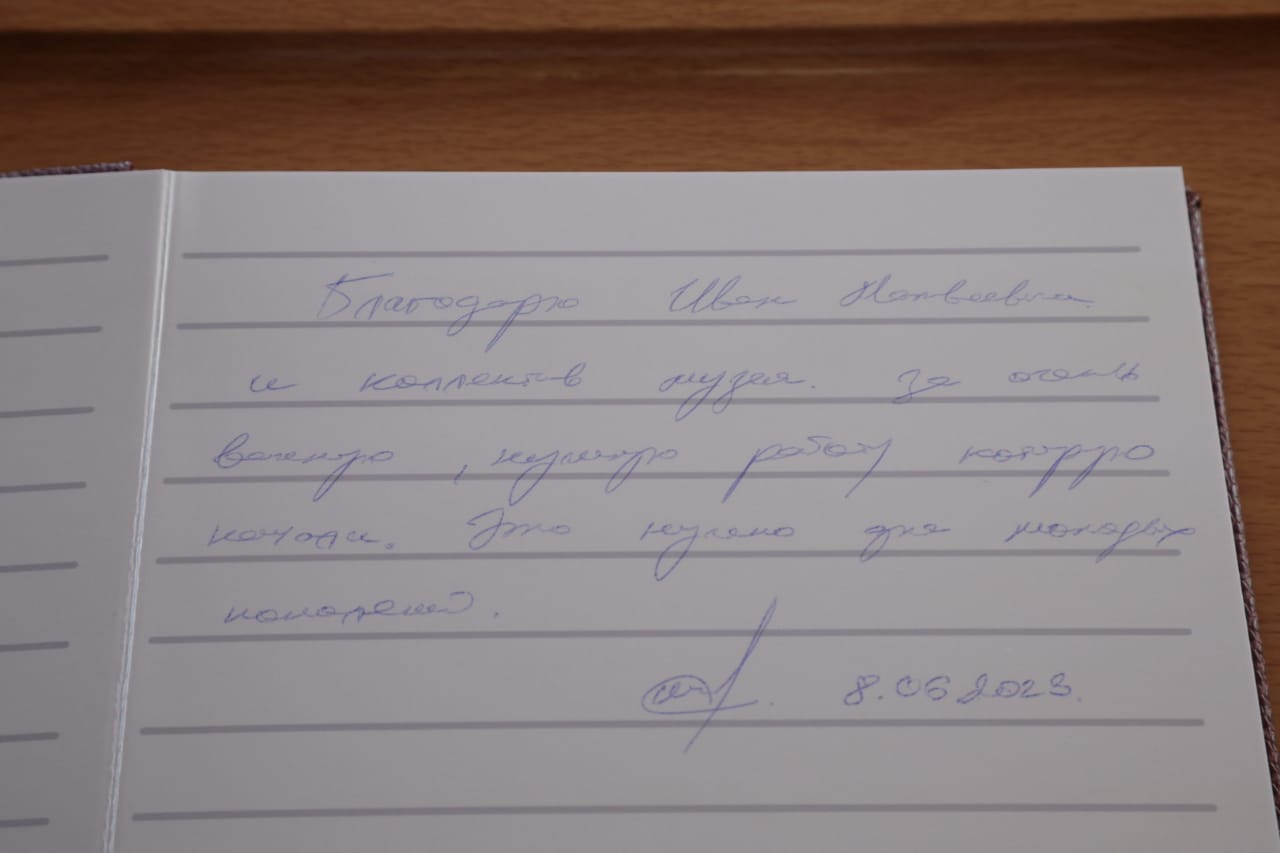 Благодарю Иван Матвеевича
и коллектив музея. За очень
важную, нужную работу которую
начали. Это нужно для молодых
поколений.
8.06 2023.